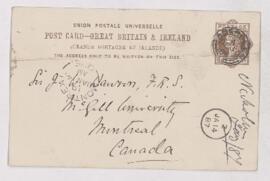 UNION POSTALE UNIVERSELLE
POST CARD—GREAT BRITAIN & IRELAND
(GRANDE BRETAGNE ET IRLANDE)
THE ADDRESS ONLY TO BE WRITTEN ON THIS SIDE.
Sir J. Dawson, F.R.S.
McGill University
Montreal
Canada
JA 14
87